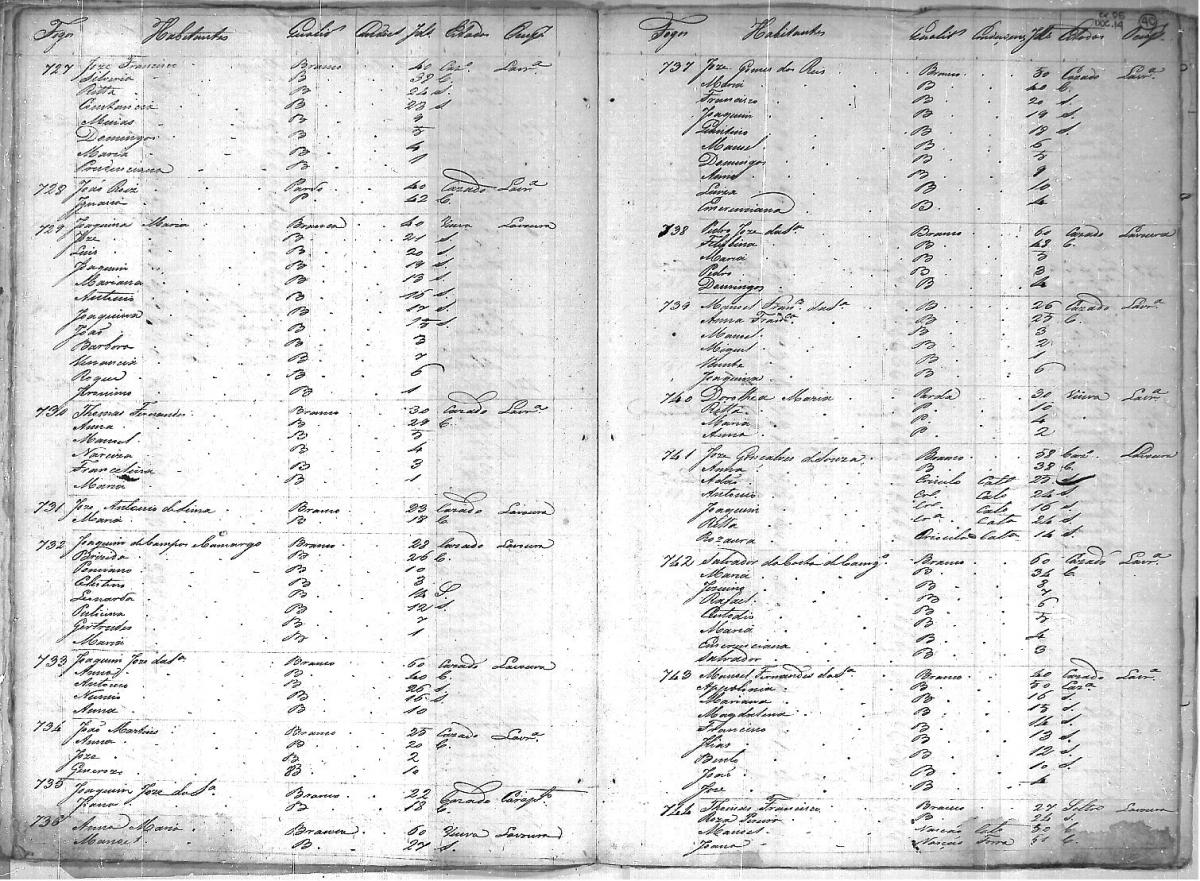 Fogos Habitantes Qualid Condict Jde Estados Occup
727 Joze Francisco Branco 40 Caz.º Lavr.ª
Silveria B 39 C
Ritta B 24 S
Constancia B 23 S
B 9
Domingos B 5
Maria B 4
Prudenciana B 1
728 João Pardo 40 Cazado Lavr.ª
Ignacia P 42 C
729 Joaquina Maria Branca 40 Viuva Lavoura
Joze B 21 S
Luis B 20 S
Joaquim B 18 S
Mariana B 13 S
Antonio B 16 S
Joaquina B S
João B S
Barbora B 3
Venancia B 7
Roque B 6
Jeronimo B 1
730 Thomas Fernandes Branco 30 Cazado Lavr.ª
Anna B 29 C
Manoel B 5
Narciza B 4
Francelina B 3
Maria B 1
731 Joze Antonio de Lima Branco 23 Cazado Lavoura
Maria B 18 C
732 Joaquim de Campos Camargo Branco 28 Cazado Lavoura
Brizida B 26 C
Ponciano B 10
Celestino B 3
Leonarda B 14 S
Policena B 12 S
Gertrudes B 7
Maria B 1
733 Joaquim Joze da S.ª Branco 60 Cazado Lavoura
Anna B 40 C
Antonio B 26 S
B 16 S
Anna B 10
734 João Martins Branco 25 Cazado Lavr.ª
Anna B 20 C
Joze B 2
Generozo B 10
735 Joaquim Joze da S.ª Branco 22 Cazado
Joana B 18 C
736 Anna Maria Branca 60 Viuva Lavoura
Manoel B 27 S
Ex 05
DOC. 14
40
Fogos Habitantes Qualid Jde Estados Occup
737 Joze Gomes dos Reis Branco 50 Cazado Lavr.ª
Maria B 40 C
Francisco B 20 S
Joaquim B 19 S
B 18 S
Manoel B 6
Domingos B 5
Anna B 9
Luiza B 10
Emerenciana B 4
738 Pedro Joze da S.ª Branco 60 Cazado Lavoura
Felisbina B 48 C
Maria B 5
Pedro B 3
Domingos B 4
739 Manoel Fran.co da S.ª B 26 Cazado Lavr.ª
Anna Fran.ca B 25 C
Manoel B 3
Miguel B 2
Bento B 1
Joaquina B 6
740 Dorothea Maria Parda 30 Viuva Lavr.ª
Ritta P. 10
Maria P. 4
Anna P. 2
741 Joze Gonsalves de Souza Branco 58 Caz.º Lavoura
Anna B 38 C
Adão Crioulo Cato 25 S
Antonio Cro. Cato 24 S
Joaquim Cro. Cato 16 S
Ritta Cr.ª Cata 24 S
Rozaura Crioula Cata 14 S
742 Salvador da Costa de Camg.º Branco 60 Cazado Lavr.ª
Maria B 34 C
B
Rafael B 7
Custodio B 6
Maria B 5
Emerenciana B 4
Salvador B 3
743 Manoel Fernandes da S.ª Branco 40 Cazado Lavr.ª
Appolonia B 50 Caz.ª
Mariana B 16 S
Magdalena B 15 S
Francisco B 14 S
Elias B 13 S
Bento B 12 S
João B 10 S
Joze B 4
744 Thomas Francisco Branco 27 Soltro Lavoura
Roza B 24 S
Manoel Nasçao Cato 50 C
Joana Nasçao Forra 51 C